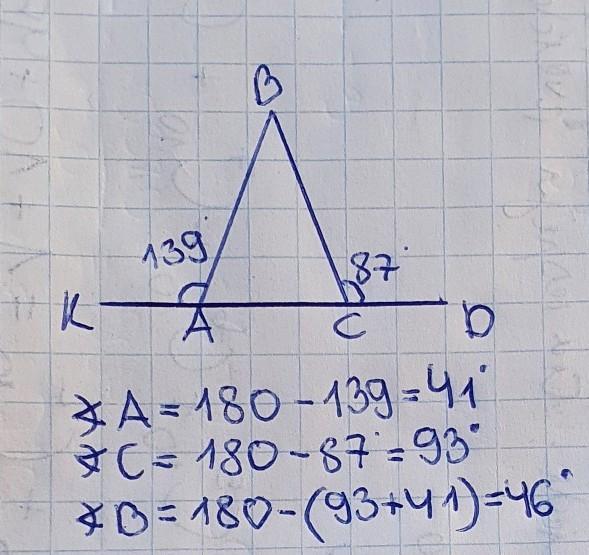 B
139° 87°
K A C D
∡ A = 180 - 139 = 41°
∡ C = 180 - 87° = 93°
∡ B = 180 - (93+41) = 46°